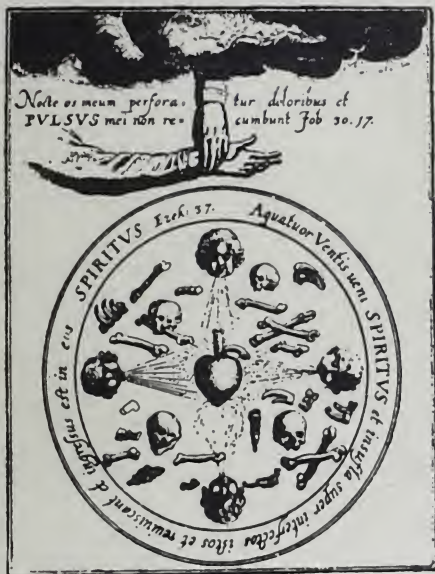 Nocte os meum perfora= tur doloribus et
PVLSVS mei non re= cumbunt Job 30.17.
Aquatuor Ventis ueni SPIRITVS et insufla super interfectos istos et reuiuiscant et ingressus est in eos SPIRITVS Ezek: 37.